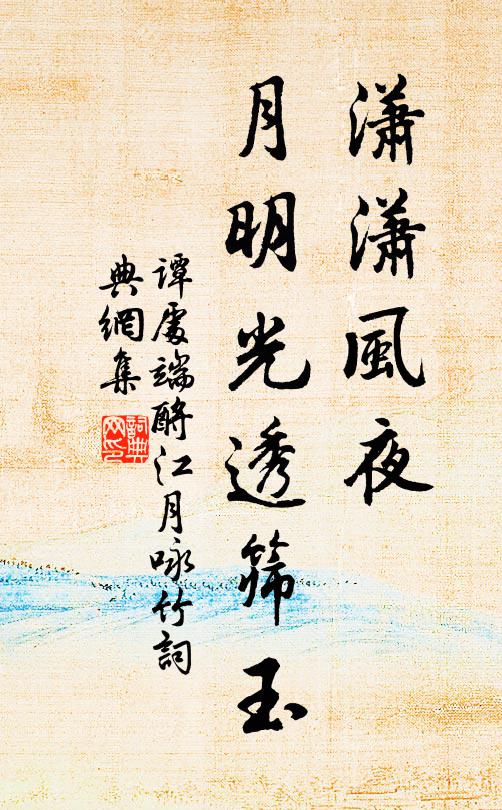 瀟瀟風夜
月明光透篩玉
譚處端酹江月咏竹詞
典網集
詞典網印